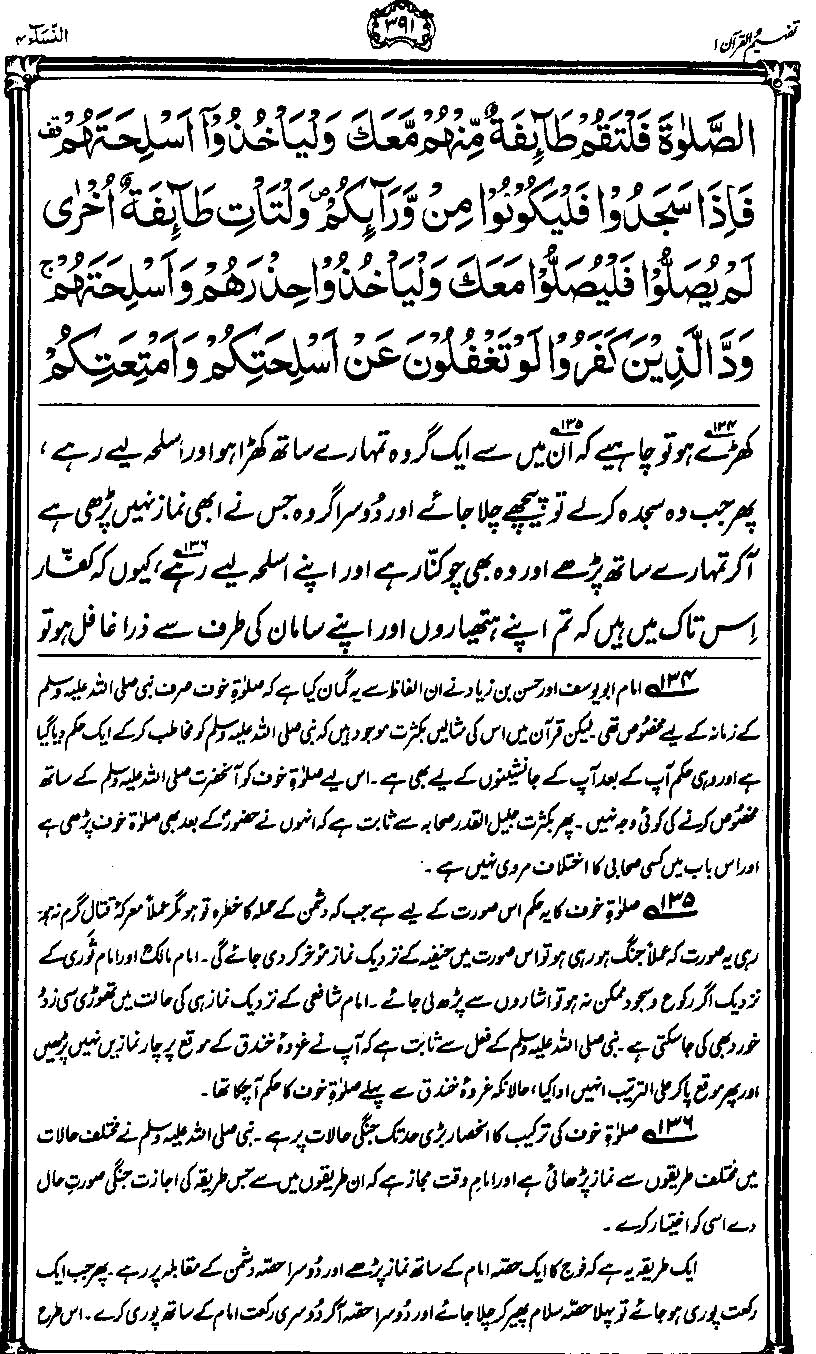 تفہیم القرآن ۱
۳۹۱
النّسآء ۴
الصَّلٰوةَ فَلْتَقُمْ طَآئِفَةٌ مِّنْهُمْ مَّعَكَ وَلْيَأْخُذُوْٓا اَسْلِحَتَهُمْ
فَاِذَا سَجَدُوْا فَلْيَكُوْنُوْا مِنْ وَّرَآئِكُمْ وَلْتَأْتِ طَآئِفَةٌ اُخْرٰى
لَمْ يُصَلُّوْا فَلْيُصَلُّوْا مَعَكَ وَلْيَأْخُذُوْا حِذْرَهُمْ وَاَسْلِحَتَهُمْ ج
وَدَّ الَّذِيْنَ كَفَرُوْا لَوْ تَغْفُلُوْنَ عَنْ اَسْلِحَتِكُمْ وَاَمْتِعَتِكُمْ
کھڑے ۱۳۴ ہو تو چاہیے کہ ۱۳۵ اُن میں سے ایک گروہ تمہارے ساتھ کھڑا ہو اور اسلحہ لیے رہے،
پھر جب وہ سجدہ کر لے تو پیچھے چلا جائے اور دُوسرا گروہ جس نے ابھی نماز نہیں پڑھی ہے
آ کر تمہارے ساتھ پڑھے اور وہ بھی چوکنّا رہے اور اپنے اسلحہ لیے رہے ۱۳۶، کیوں کہ کفّار
اِس تاک میں ہیں کہ تم اپنے ہتھیاروں اور اپنے سامان کی طرف سے ذرا غافل ہو تو
۱۳۴ امام ابو یوسف اور حسن بن زیاد نے ان الفاظ سے یہ گمان کیا ہے کہ صلوٰۃِ خوف صرف نبی صلی اللہ علیہ وسلم
کے زمانہ کے لیے مخصُوص تھی۔ لیکن قرآن میں اس کی مثالیں بکثرت موجود ہیں کہ نبی صلی اللہ علیہ وسلم کو مخاطب کر کے ایک حکم دیا گیا
ہے اور وہی حکم آپ کے بعد آپ کے جانشینوں کے لیے بھی ہے۔ اس لیے صلوٰۃِ خوف کو آنحضرت صلی اللہ علیہ وسلم کے ساتھ
مخصُوص کرنے کی کوئی وجہ نہیں۔ پھر بکثرت جلیل القدر صحابہ سے ثابت ہے کہ انہوں نے حضورؐ کے بعد بھی صلوٰۃ خوف پڑھی ہے
اور اس باب میں کسی صحابی کا اختلاف مروی نہیں ہے۔
۱۳۵ صلوٰۃِ خوف کا یہ حکم اس صورت کے لیے ہے جب کہ دشمن کے حملہ کا خطرہ تو ہو مگر عملاً معرکۂ قتال گرم نہ ہو۔
رہی یہ صورت کہ عملاً جنگ ہو رہی ہو تو اس صورت میں حنفیہ کے نزدیک نماز مؤخر کر دی جائے گی۔ امام مالکؒ اور امام ثَوری کے
نزدیک اگر رکوع و سجود ممکن نہ ہو تو اشاروں سے پڑھ لی جائے۔ امام شافعی کے نزدیک نماز ہی کی حالت میں تھوڑی سی زدو
خورد بھی کی جا سکتی ہے۔ نبی صلی اللہ علیہ وسلم کے فعل سے ثابت ہے کہ آپ نے غزوۂ خندق کے موقع پر چار نمازیں نہیں پڑھیں
اور پھر موقع پا کر علی الترتیب انہیں ادا کیا، حالانکہ غزوۂ خندق سے پہلے صلوٰۃِ خوف کا حکم آ چکا تھا۔
۱۳۶ صلوٰۃِ خوف کی ترکیب کا انحصار بڑی حد تک جنگی حالات پر ہے۔ نبی صلی اللہ علیہ وسلم نے مختلف حالات
میں مختلف طریقوں سے نماز پڑھائی ہے اور امامِ وقت مجاز ہے کہ ان طریقوں میں سے جس طریقہ کی اجازت جنگی صورتِ حال
دے اسی کو اختیار کرے۔
ایک طریقہ یہ ہے کہ فوج کا ایک حصّہ امام کے ساتھ نماز پڑھے اور دُوسرا حصّہ دشمن کے مقابلہ پر رہے۔ پھر جب ایک
رکعت پوری ہو جائے تو پہلا حصّہ سلام پھیر کر چلا جائے اور دُوسرا حصّہ آ کر دُوسری رکعت امام کے ساتھ پوری کرے۔ اس طرح